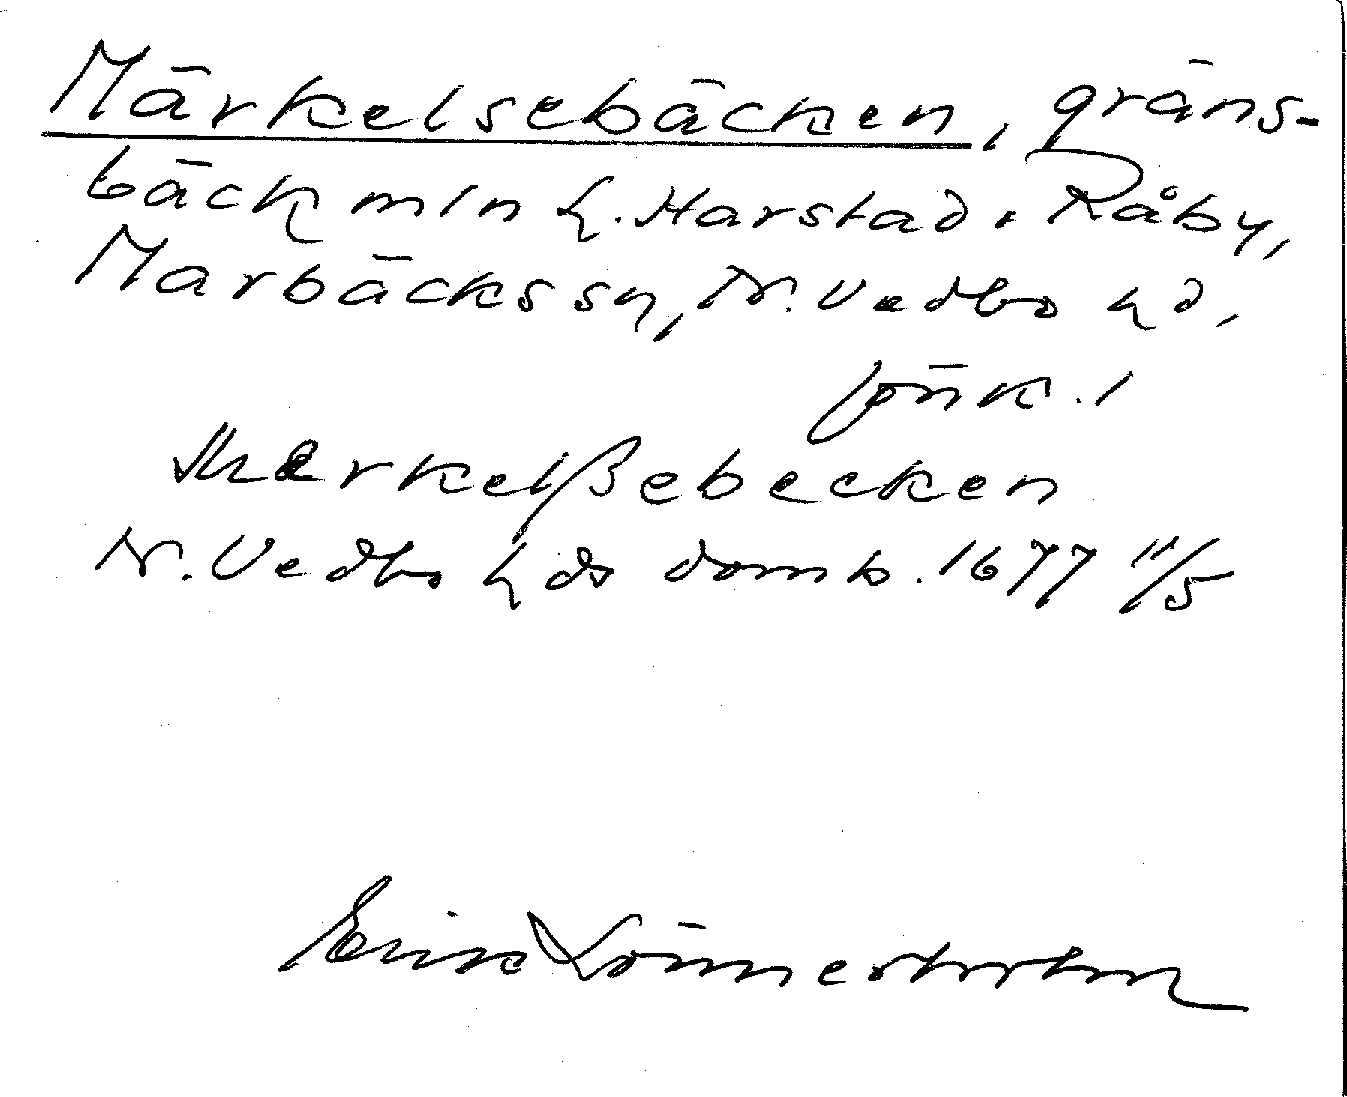 Märkelsebäcken, gräns-
bäck mln h. Harstad o. Råby,
Marbäcks sn, N. Vedbo hd,
Jönk. l
Merkelßebecken
N. Vedbo hds domb. 1677 11/5
Erik Lönnerholm